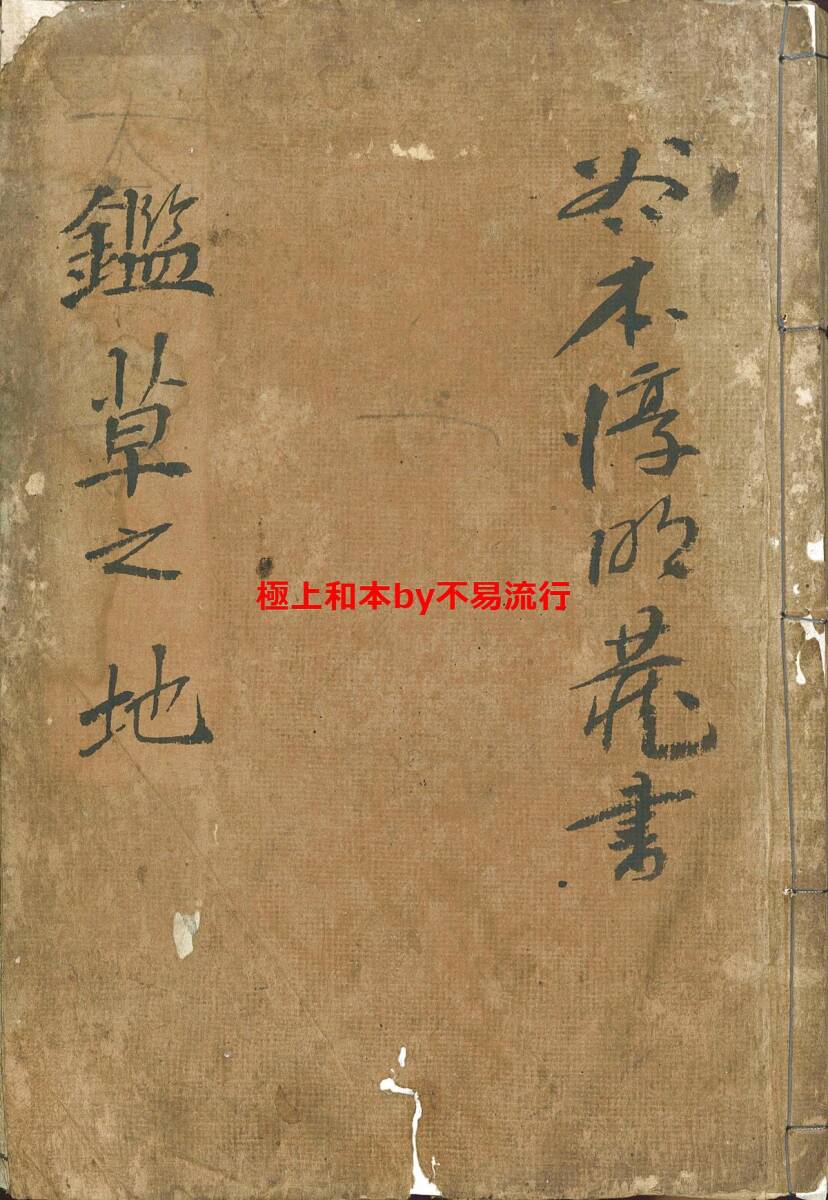 谷本惇明蔵書
鑑草之地
極上和本by不易流行